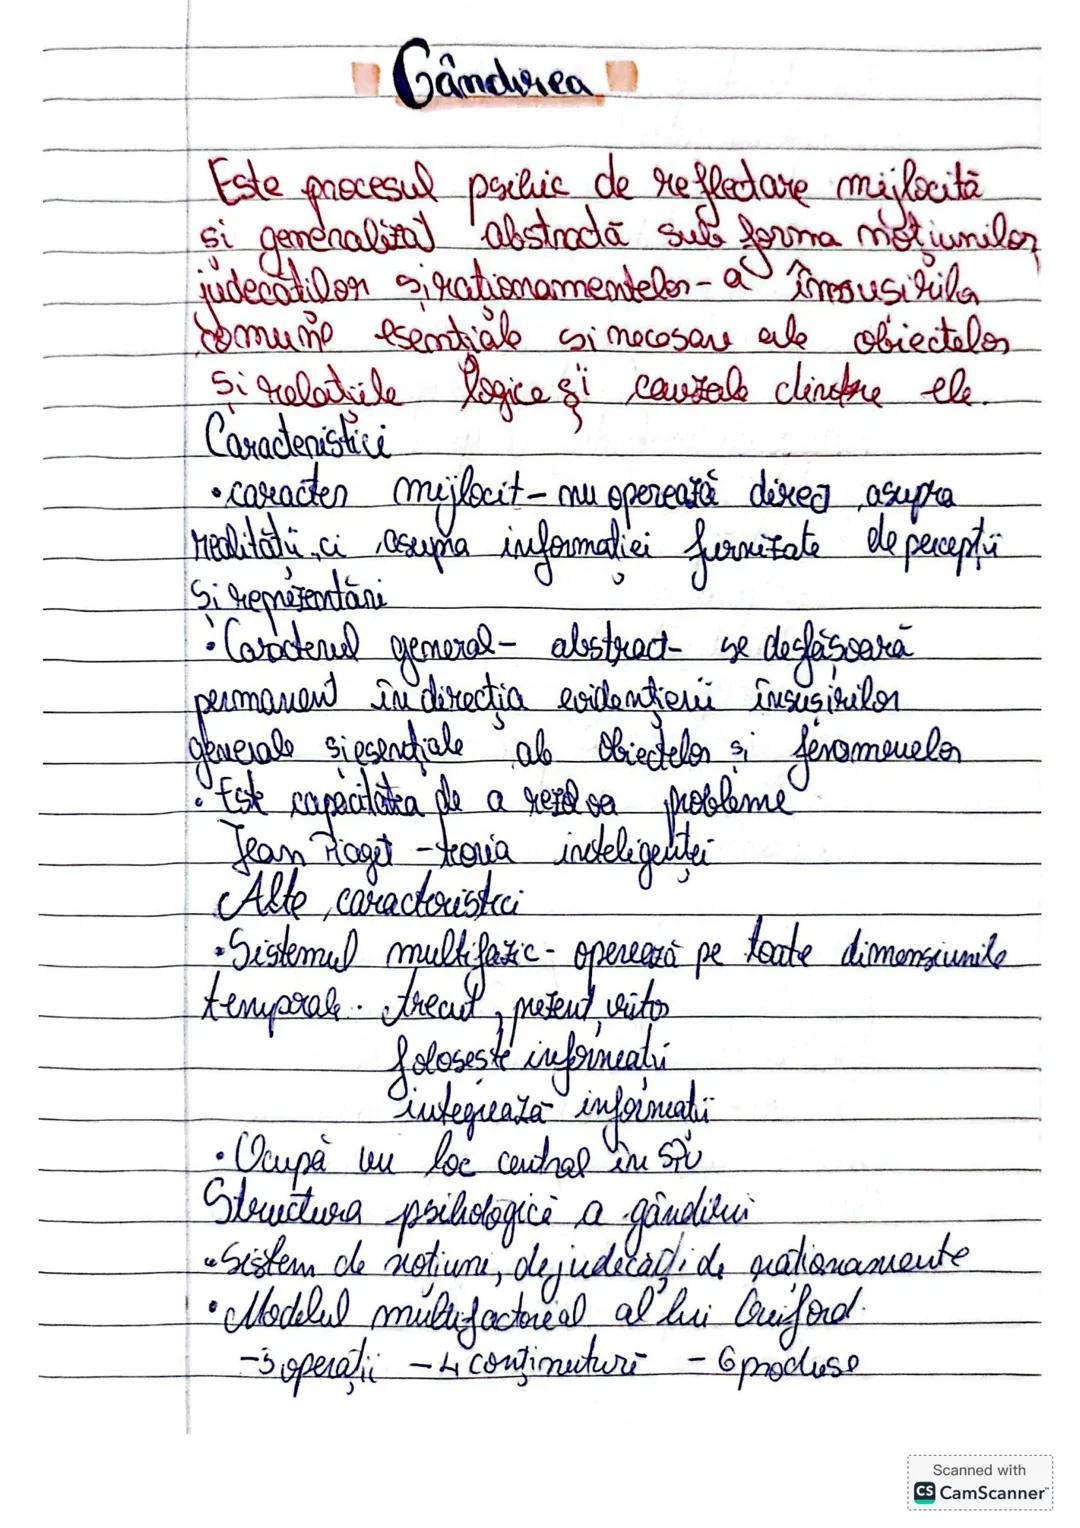 Gândirea
Este procesul psihic de reflectare mijlocită
si generalizat abstractă sub forma noțiunilor
judecătilor si rationamentelor - a însusirilor
comune esentiale si necesare ale obiectelor
Si relatiile logice și cauzale dintre ele.
Caracteristici
• caracter mijlocit - nu operează direct asupra
realității, ci asupra informatiei furnizate de percepții
Si reprezentări
• Caracterul general - abstract - se desfăsoară
permanent în direcția evidențierii însușirilor
generale si esențiale ale obiectelor si fenomenelor
• Este capacitatea de a rezolva probleme
Jean Piaget - teoria inteligenței
Alte caracteristici
• Sistemul multifazic - operează pe toate dimensiunile
temporale. trecut, prezent, viitor
foloseste informatii
integrează informatii
• Ocupă un loc central în SPU
Structura psihologică a gândirii
• Sistem de noțiuni, de judecăți de rationamente
• Modelul multifactorial al lui Guiford.
- 5 operații - 4 conținuturi - 6 produse
Scanned with
CS CamScanner